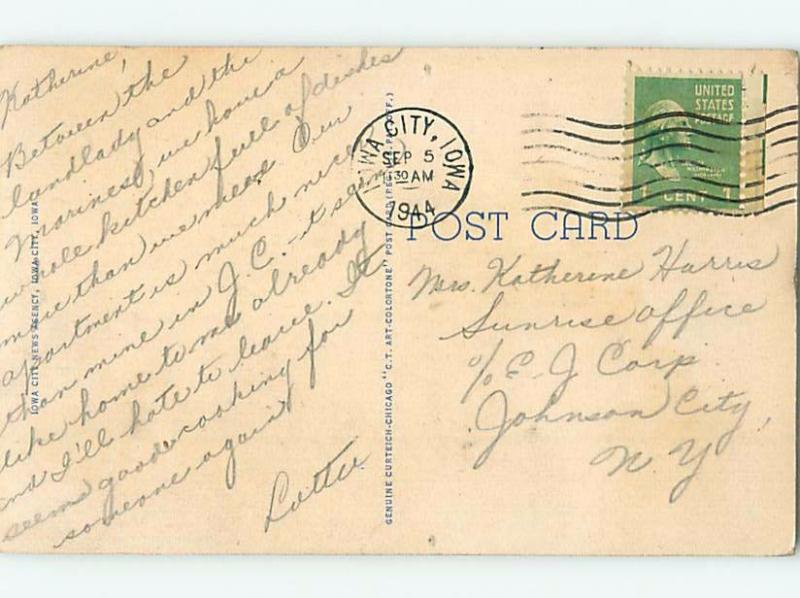 Katherine,
Between the
landlady and the
Marines, we have a
whole kitchen full of dishes
more than we need. Our
apartment is much nicer
than mine in J.C. - it seems
like home to me already
and I'll hate to leave. It
seems good cooking for
someone again
Lottie
IOWA CITY NEWS AGENCY, IOWA CITY, IOWA
GENUINE CURTEICH-CHICAGO "C.T. ART-COLORTONE" POST CARD (REG. U.S. PAT. OFF.)
IOWA CITY, IOWA
SEP 5
30 AM
1944
UNITED
STATES
POSTAGE
WASHINGTON
1 CENT 1
POST CARD
Mrs. Katherine Harris
Sunrise Office
c/o E-J Corp
Johnson City,
N. Y.